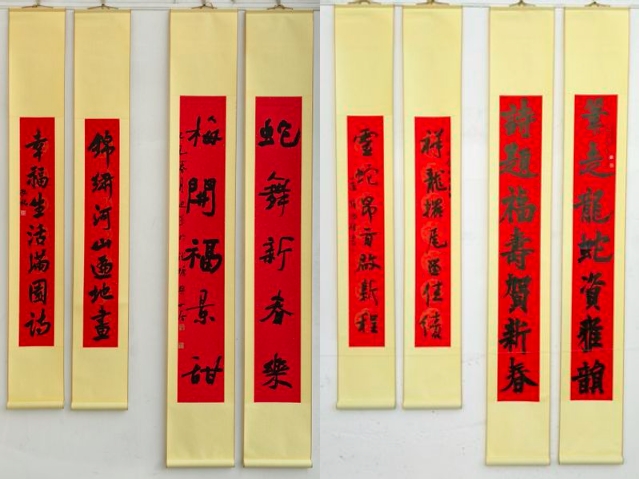 筆走龍蛇資雅韻
詩題福壽賀新春
祥龍擺尾留佳績
靈蛇昂首啟新程
蛇舞新春樂
梅開福景甜
錦繡河山遍地畫
幸福生活滿園詩